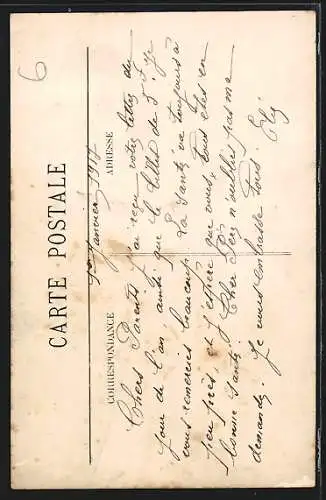 6
CARTE POSTALE
CORRESPONDANCE
ADRESSE
1er Janvier 1917
Chers Parents J'ai reçu votre lettre du
jour de l'an, ainsi que le billet de 5f Je
vous remercies beaucoup. La santé va toujours à
peu près, et j'espère que vous tous êtes en
bonne santé. Cher Père n'oublies pas ma
demande. Je vous embrasse tous.